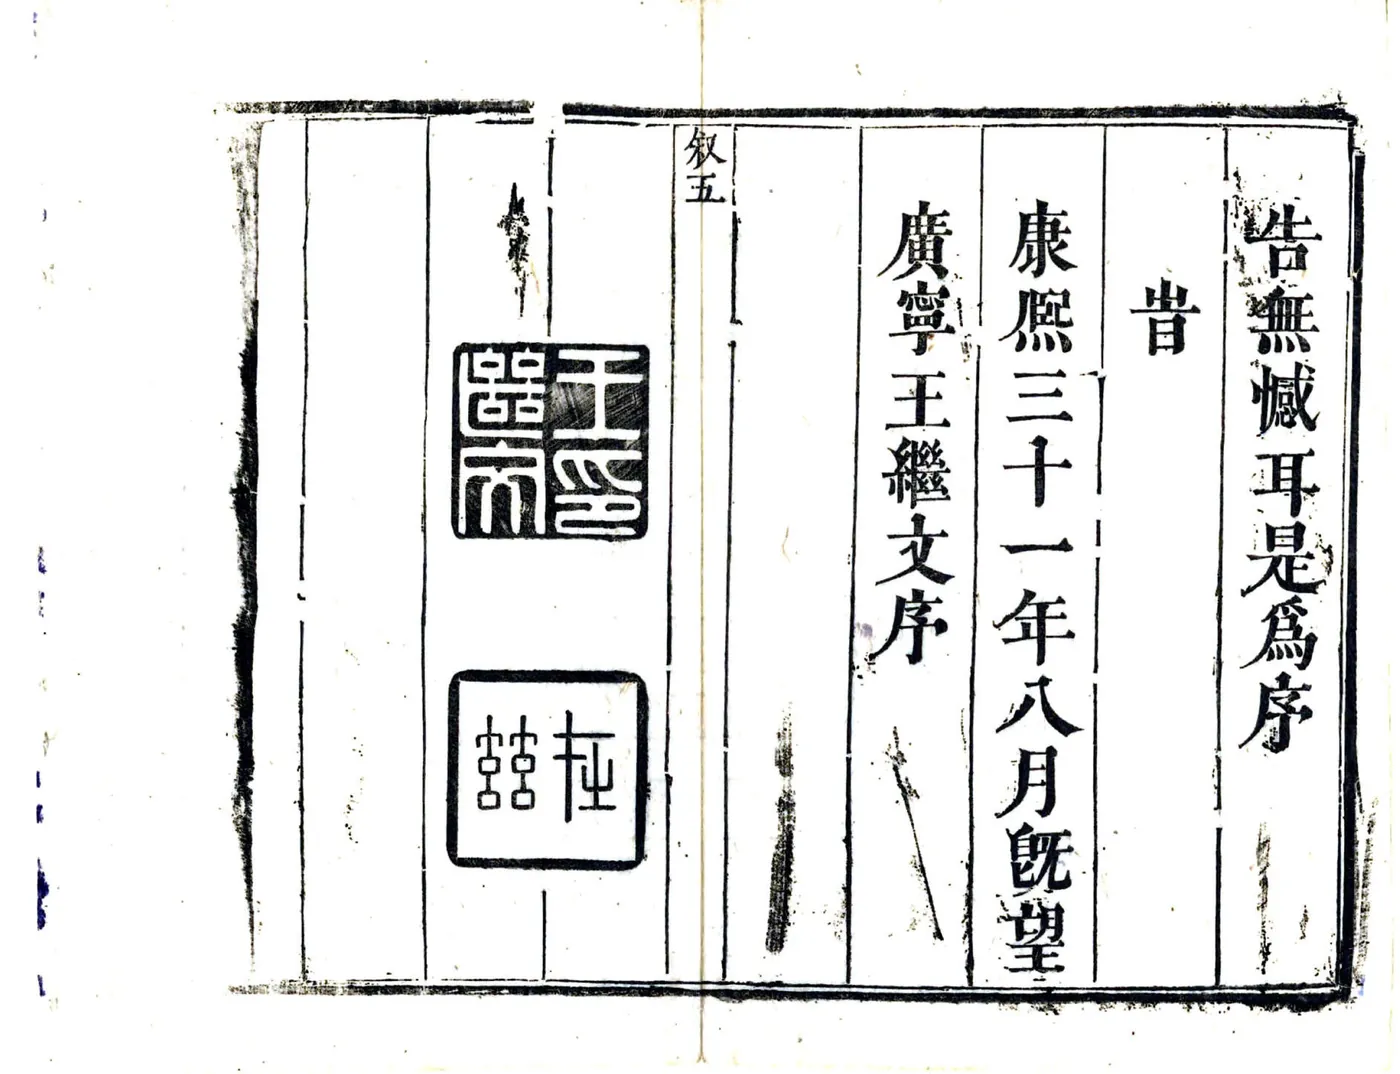 告無憾耳是爲序
旹
康熙三十一年八月旣望
廣寧王繼文序
叙五
王印繼文
在茲